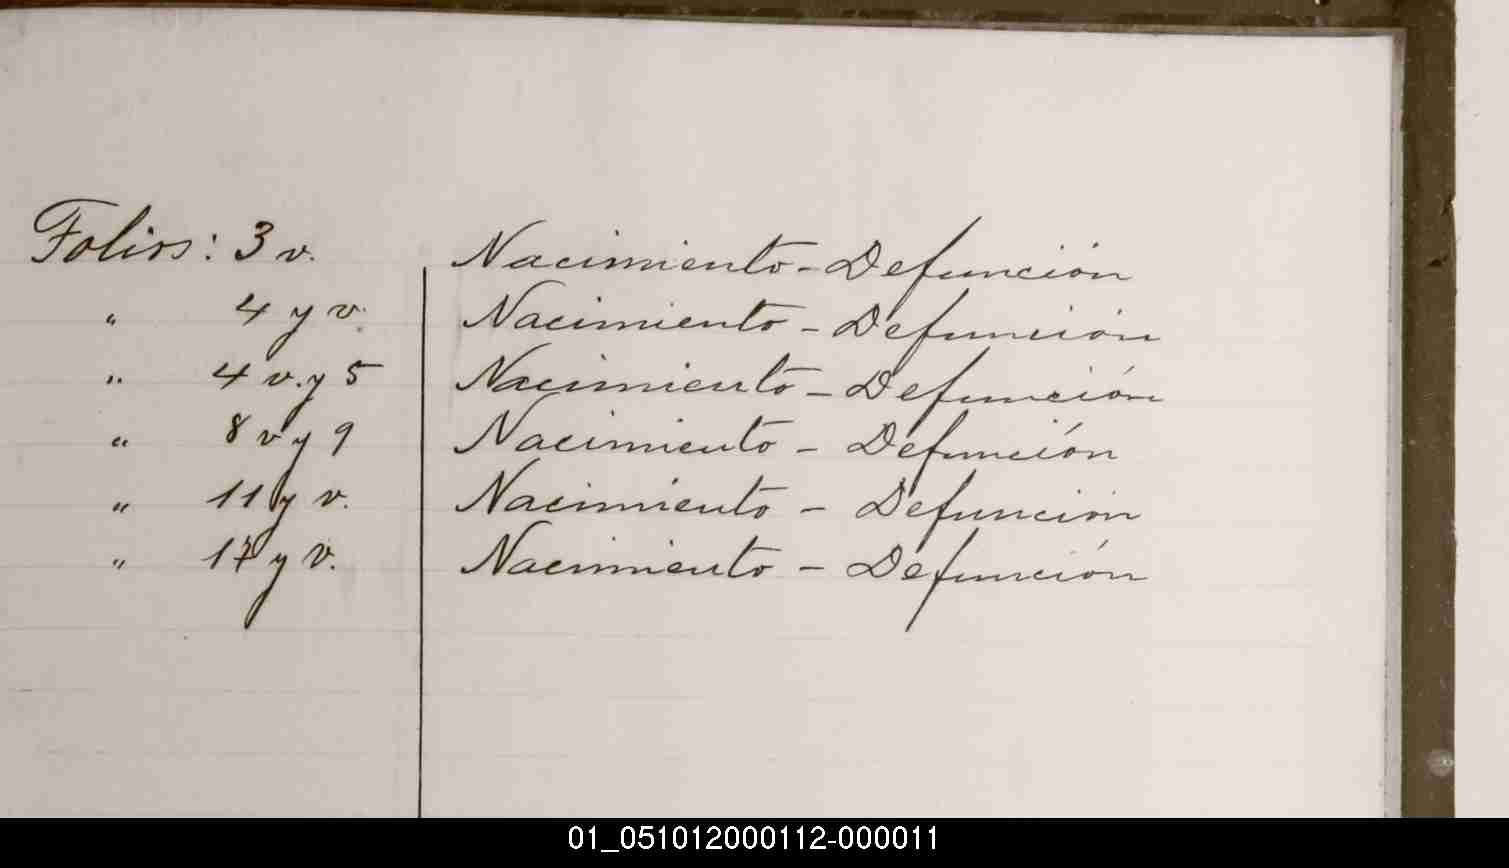 Folios: 3 v. Nacimiento - Defunción
" 4 y v. Nacimiento - Defunción
" 4 v. y 5 Nacimiento - Defunción
" 8 v y 9 Nacimiento - Defunción
" 11 y v. Nacimiento - Defunción
" 17 y v. Nacimiento - Defunción
01_051012000112-000011